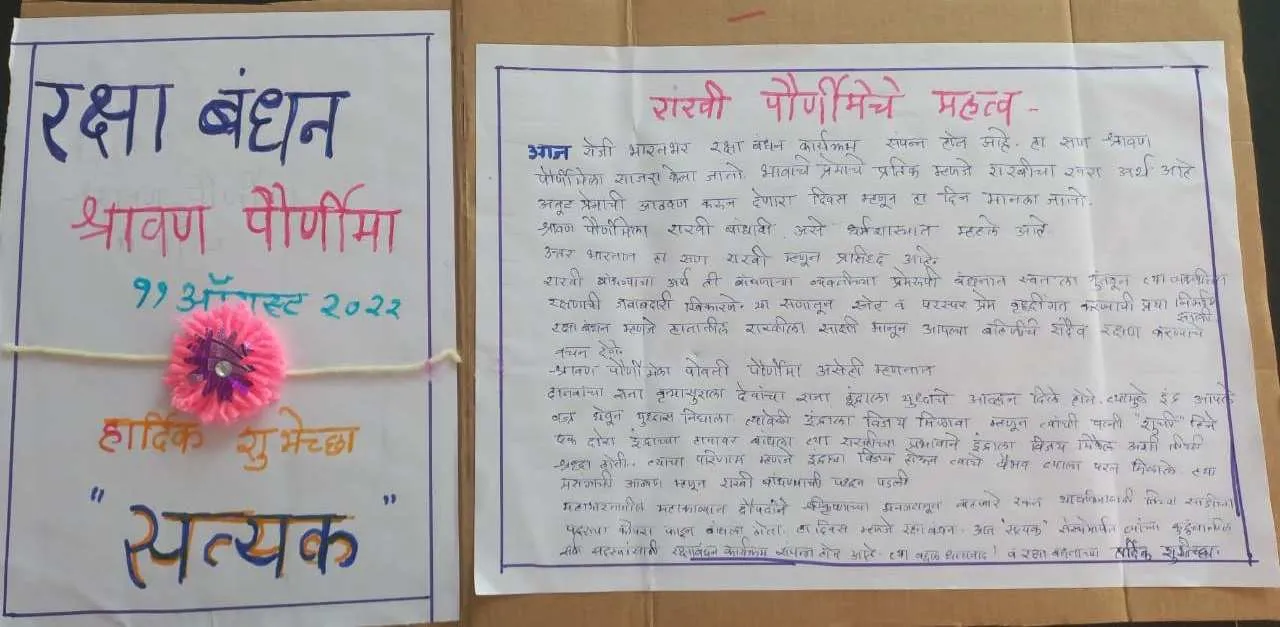 रक्षा बंधन
श्रावण पौर्णीमा
११ ऑगस्ट २०२२
हार्दिक शुभेच्छा
"सत्यक"
राखी पौर्णीमेचे महत्व -
आज रोजी भारतभर रक्षा बंधन कार्यक्रम संपन्न होत आहे. हा सण श्रावण
पौर्णीमेला साजरा केला जातो. भावाचे प्रेमाचे प्रतिक म्हणजे राखीचा खरा अर्थ आहे
अतूट प्रेमाची आठवण करून देणारा दिवस म्हणून हा दिन मानला जातो.
श्रावण पौर्णीमेला राखी बांधावी असे धर्मशास्त्रात म्हटले आहे.
उत्तर भारतात हा सण राखी म्हणून प्रसिध्द आहे.
राखी बांधण्याचा अर्थ ती बांधणाऱ्या व्यक्तीच्या प्रेमरुपी बंधनात स्वतःला गुंतवून त्या व्यक्तीच्या
रक्षणाची जबाबदारी स्विकारणे. या सणातून स्नेह व परस्पर प्रेम वृध्दींगत करण्याची प्रथा निर्माण
झाली
रक्षा बंधन म्हणजे हातातील राखीला साक्षी मानून आपल्या बहिणीचे सदैव रक्षण करण्याचे
वचन देणे.
श्रावण पौर्णीमेला पोवती पौर्णीमा असेही म्हणतात
दानवांचा राजा वृत्रासुराला देवांचा राजा इंद्राला युध्दाचे आव्हान दिले होते. त्यामुळे इंद्र आपले
वज्र घेवून युध्दास निघाला. त्यावेळी इंद्राला विजय मिळावा म्हणून त्यांची पत्नी "शुची" हिने
एक दोरा इंद्राच्या हातावर बांधला त्या राखीच्या प्रभावाने इंद्राला विजय मिळेल अशी तीची
श्रध्दा होती. त्याचा परिणाम म्हणजे इंद्राचा विजय होऊन त्याचे वैभव त्याला परत मिळाले. त्या
आठवण म्हणून राखी बांधण्याची पध्दत पडली
महाभारतातील महाकाव्यात द्रौपदीने श्रीकृष्णाच्या वाहणारे रक्त थांबविण्यासाठी तिच्या साडीच्या
पदराचा फाडून बांधला होता. हा दिवस म्हणजे रक्षाबंधन. आज 'सत्यक' संस्थेमार्फत त्यांच्या कुटुंबातील
सर्व रक्षाबंधन कार्यक्रम संपन्न होत आहे. त्या बद्दल धन्यवाद! व रक्षा बंधनाच्या हार्दिक शुभेच्छा.